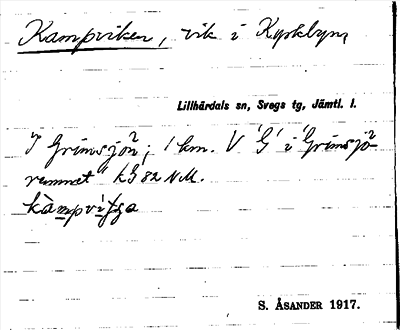 Kampviken, vik i Kyrkbyn,
Lillhärdals sn, Svegs tg, Jämtl. l.
I Grimsjön; 1 km. V "G" i "Grimsjö-
rummet" LG 82 NM.
kàmpvìga
S. ÅSANDER 1917.